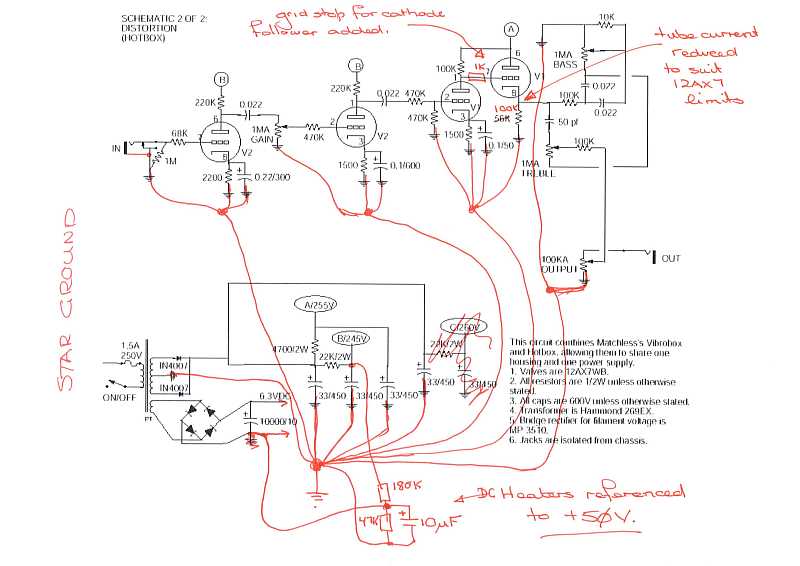 SCHEMATIC 2 OF 2:
DISTORTION
(HOTBOX)
grid stop for cathode
follower added.
tube current
reduced
to suit
12AX7
limits
A
6
10K
1MA
BASS
0.022
0.022
100K
1K
7
V1
8
100K
56K
B
220K
0.022
6
7
8
V2
IN
68K
1M
2200
0.22/300
1MA
GAIN
470K
B
220K
0.022
1
2
3
V2
1500
0.1/600
470K
470K
100K
V1
3
1500
0.1/50
50 pf
100K
1MA
TREBLE
100KA
OUTPUT
OUT
STAR GROUND
A/255V
B/245V
C/260V
4700/2W
22K/2W
22K/2W
33/450
33/450
33/450
33/450
33/450
1.5A
250V
ON/OFF
PT
IN4007
IN4007
6.3VDC
10000/10
This circuit combines Matchless's Vibrobox
and Hotbox, allowing them to share one
housing and one power supply.
1. Valves are 12AX7WB.
2. All resistors are 1/2W unless otherwise
stated.
3. All caps are 600V unless otherwise stated.
4. Transformer is Hammond 269EX.
5. Bridge rectifier for filament voltage is
MP 3510.
6. Jacks are isolated from chassis.
180K
47K
10µF
DC Heaters referenced
to +50V.